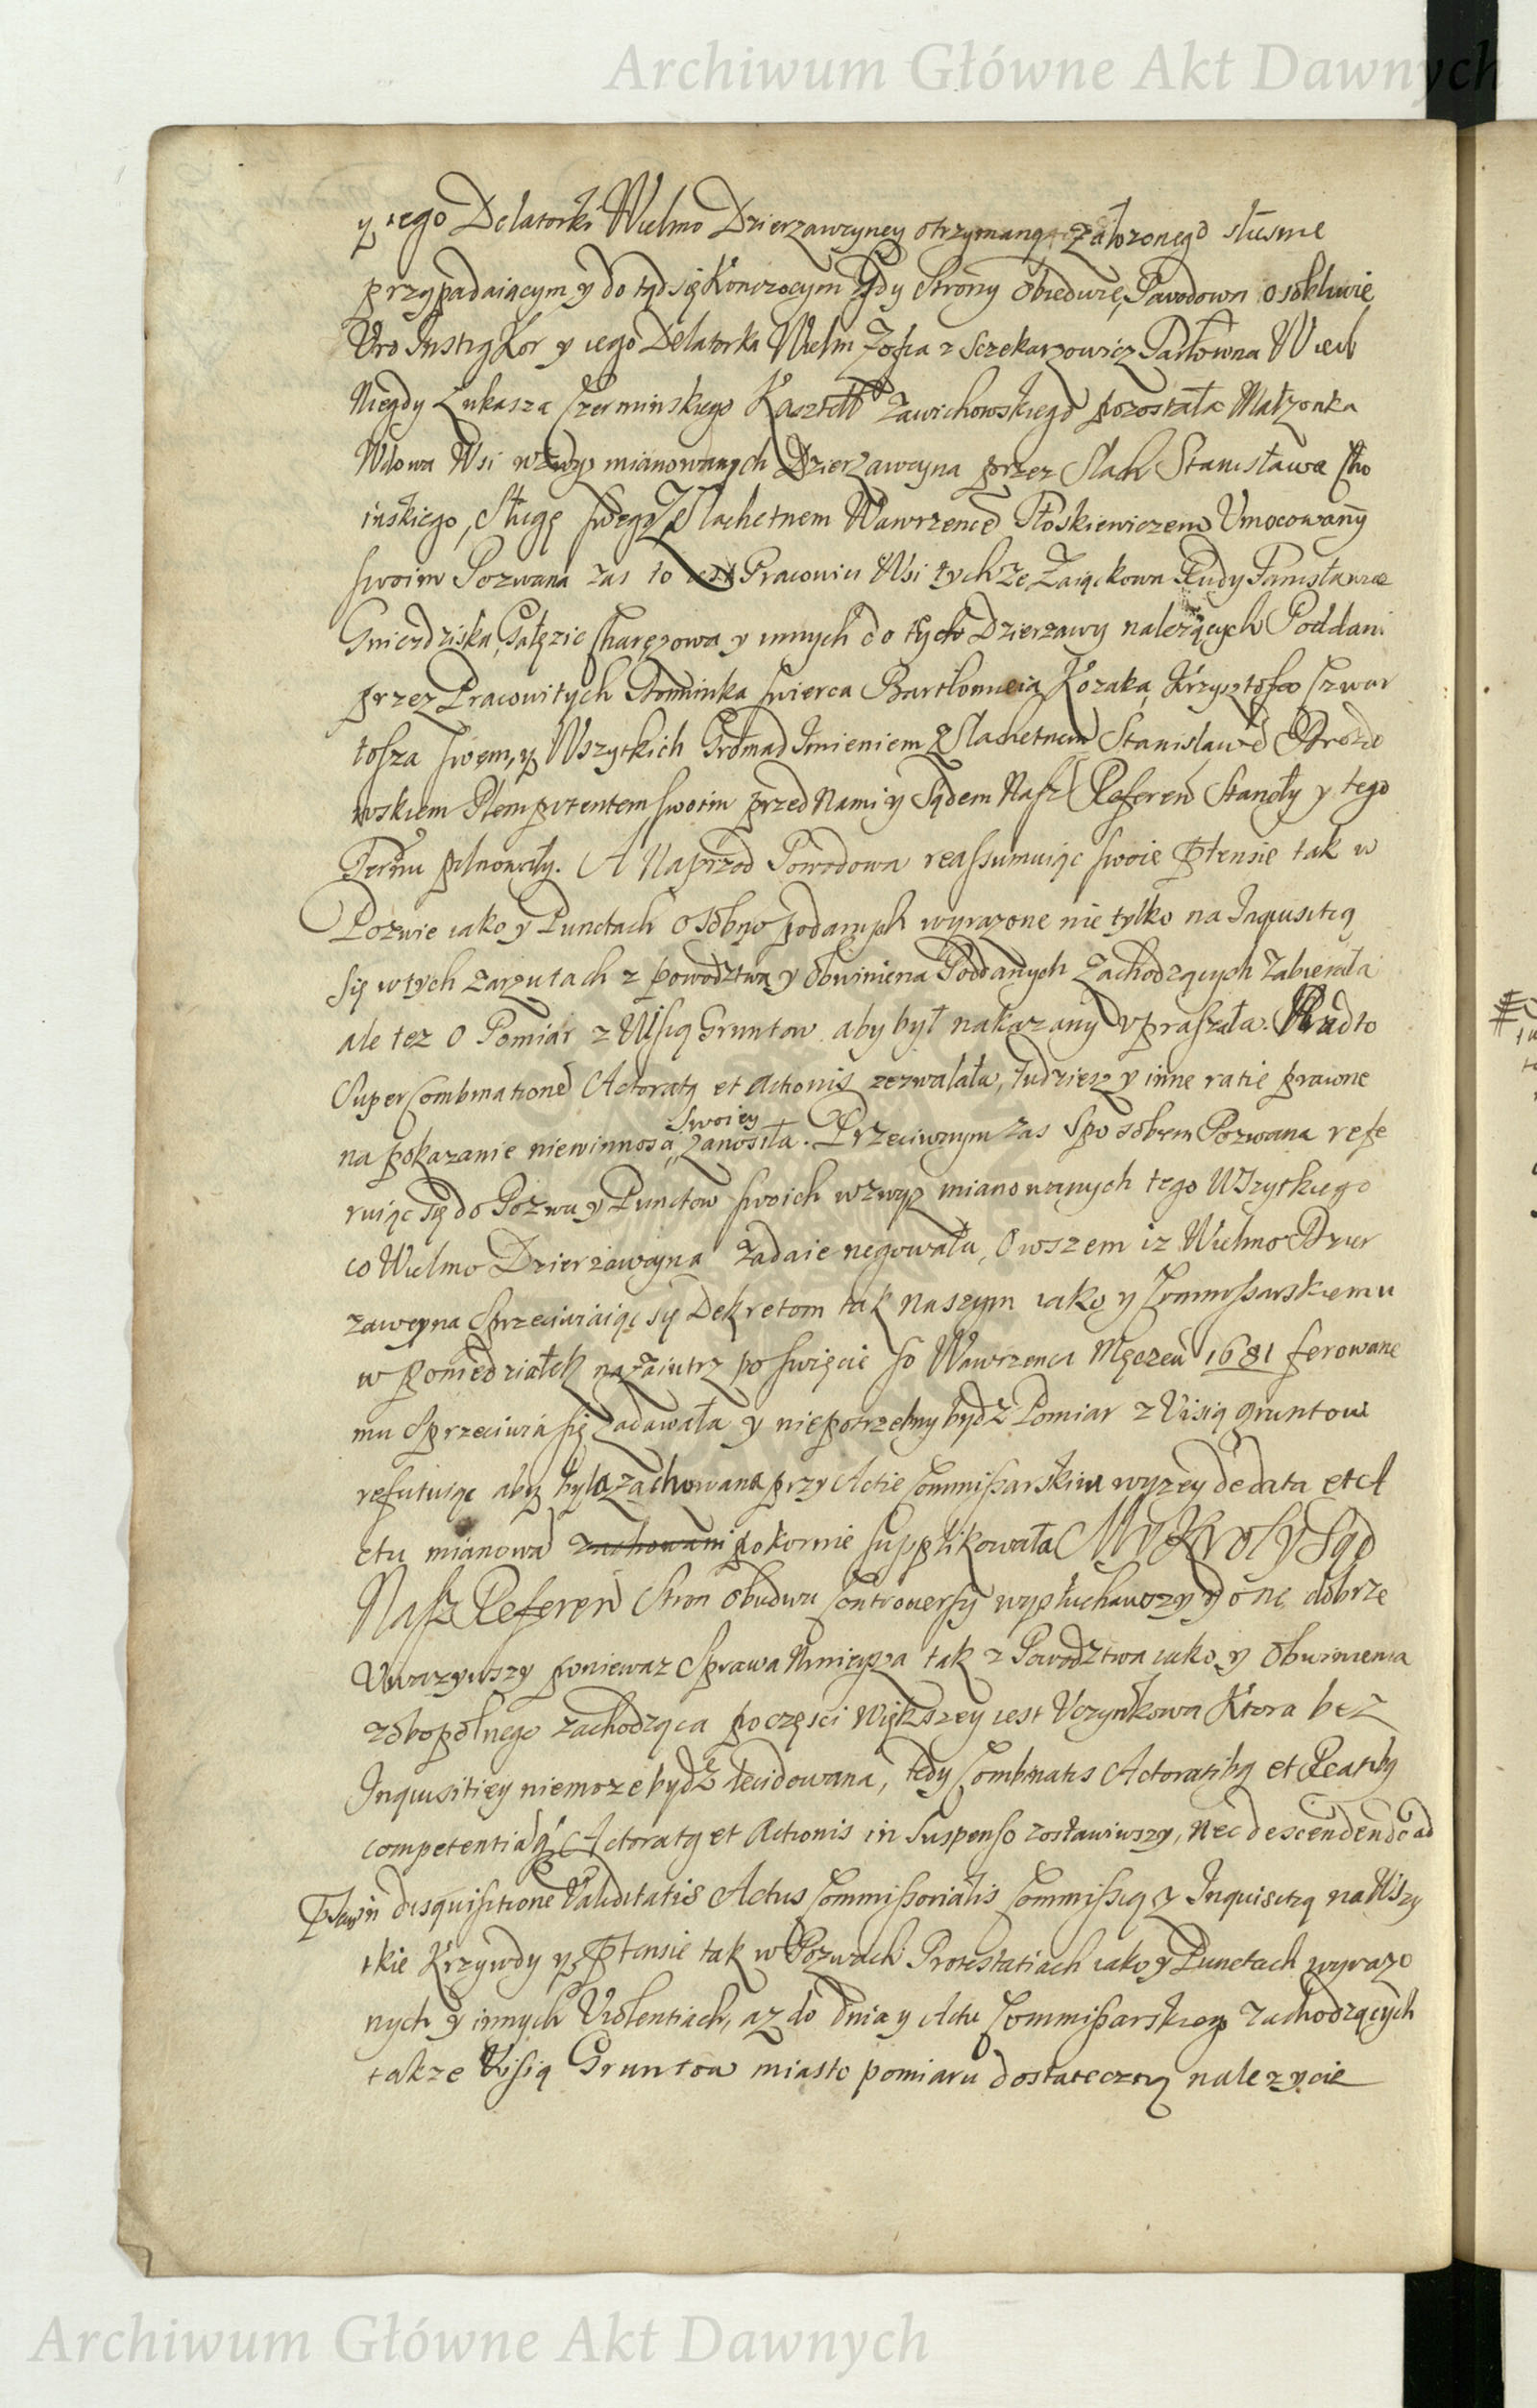 Archiwum Główne Akt Dawnych
y iego Delatorki Wielmo Dzierzawczyney otrzymaną założonego słusnie
przypadaiącym y do tąd się Konczocym gdy Strony obiedwie, Powodowa osobliwie
Uro Instig Kor y iego Delatorka Wielm Zofia z Sczekarzowicz Tarłowna Wielb
Niegdy Łukasza Czerminskiego Kasztell Zawichowskiego pozostała Małzonka
Wdowa Wsi wzwyz mianowanych Dzierzawczyna przez Slach Stanisława Cho
inskiego, Sługę swego Z Slachetnem Wawrzence Płoskiewiczem Umocowany
swoim Pozwana zas to iest Pracowici Wsi tychze Zaiączkowa Rudy Fanisławic
Gniezdziska, Gałęzic Charęzowa y innych do tych Dzierzawy nalezących Poddani
przez Pracowitych Dominika Swierca Bartłomieia Kozaka, Krzysztofa Czwar
tosza swem, y Wszytkich Gromad Imieniem z Slachetnem Stanisławe Drozdo
wskiem Plenipotentem swoim przed Nami y Sądem Nasz Referen Stanęły y tego
Termu pilnowały. A Naprzod Powodowa reassumuiąc swoie Ptensie tak w
Pozwie iako y Punctach osobno podanych wyrazone nie tylko na Inquisitią
się w tych zarzutach z powodztwa y obwinienia Poddanych zachodzących zabierała
ale tez o Pomiar z Wisią Gruntow aby był nakazany upraszała. Nadto
Super Combinatione Actoratg et Actionis zezwalała, tudziesz y inne ratie prawne
na pokazanie niewinnosci swoiey zanosiła. Przeciwnym zas Sposobem Pozwana refe
ruiąc się do Pozwu y Punctow swoich wzwyz mianowanych tego Wszytkiego
co Wielmo Dzierzawczyna zadaie negowała, Owszem iz Wielmo Dzier
zawczyna Sprzeciwiaiąc się Dekretom tak naszym iako y Commissarskiemu
w poniedziałek nazaiutrz po swięcie So Wawrzenca Męczen 1681 ferowane
mu Sprzeciwia się zadawała y niepotrzebny bydź Pomiar z Visią gruntow
refutuiąc aby była zachowana przy Actie Commissarskim wyzey de data et A
ctu mianowa zachowani pokornie supplikowała My Krol y Sąd
Nasz Referen Stron obudwu Controuersy wysłuchawszy y one dobrze
Uwazywszy poniewaz Sprawa Ninieysza tak z Powodztwa iako y obwinienia
zobopolnego zachodząca po częsci Większey iest Uczynkowa Ktora bez
Inquisitiey niemoze bydź decidowana, tedy Combinatis Actoratibg et Reatibg
competentia Actoratg et Actionis in Suspenso zostawiwszy, nec descendendo ad
disquisitione Validitatis Actus Commissorialis Commissią y Inquisitią na Wszy
tkie Krzywdy y Ptensie tak w Pozwach Protestatiach iako y Punctach wyrazo
nych y innych Violentiach, az do dnia y Actu Commissarskiey zachodzących
takze Wisią Gruntow miasto pomiaru dostateczną nalezycie
Archiwum Główne Akt Dawnych